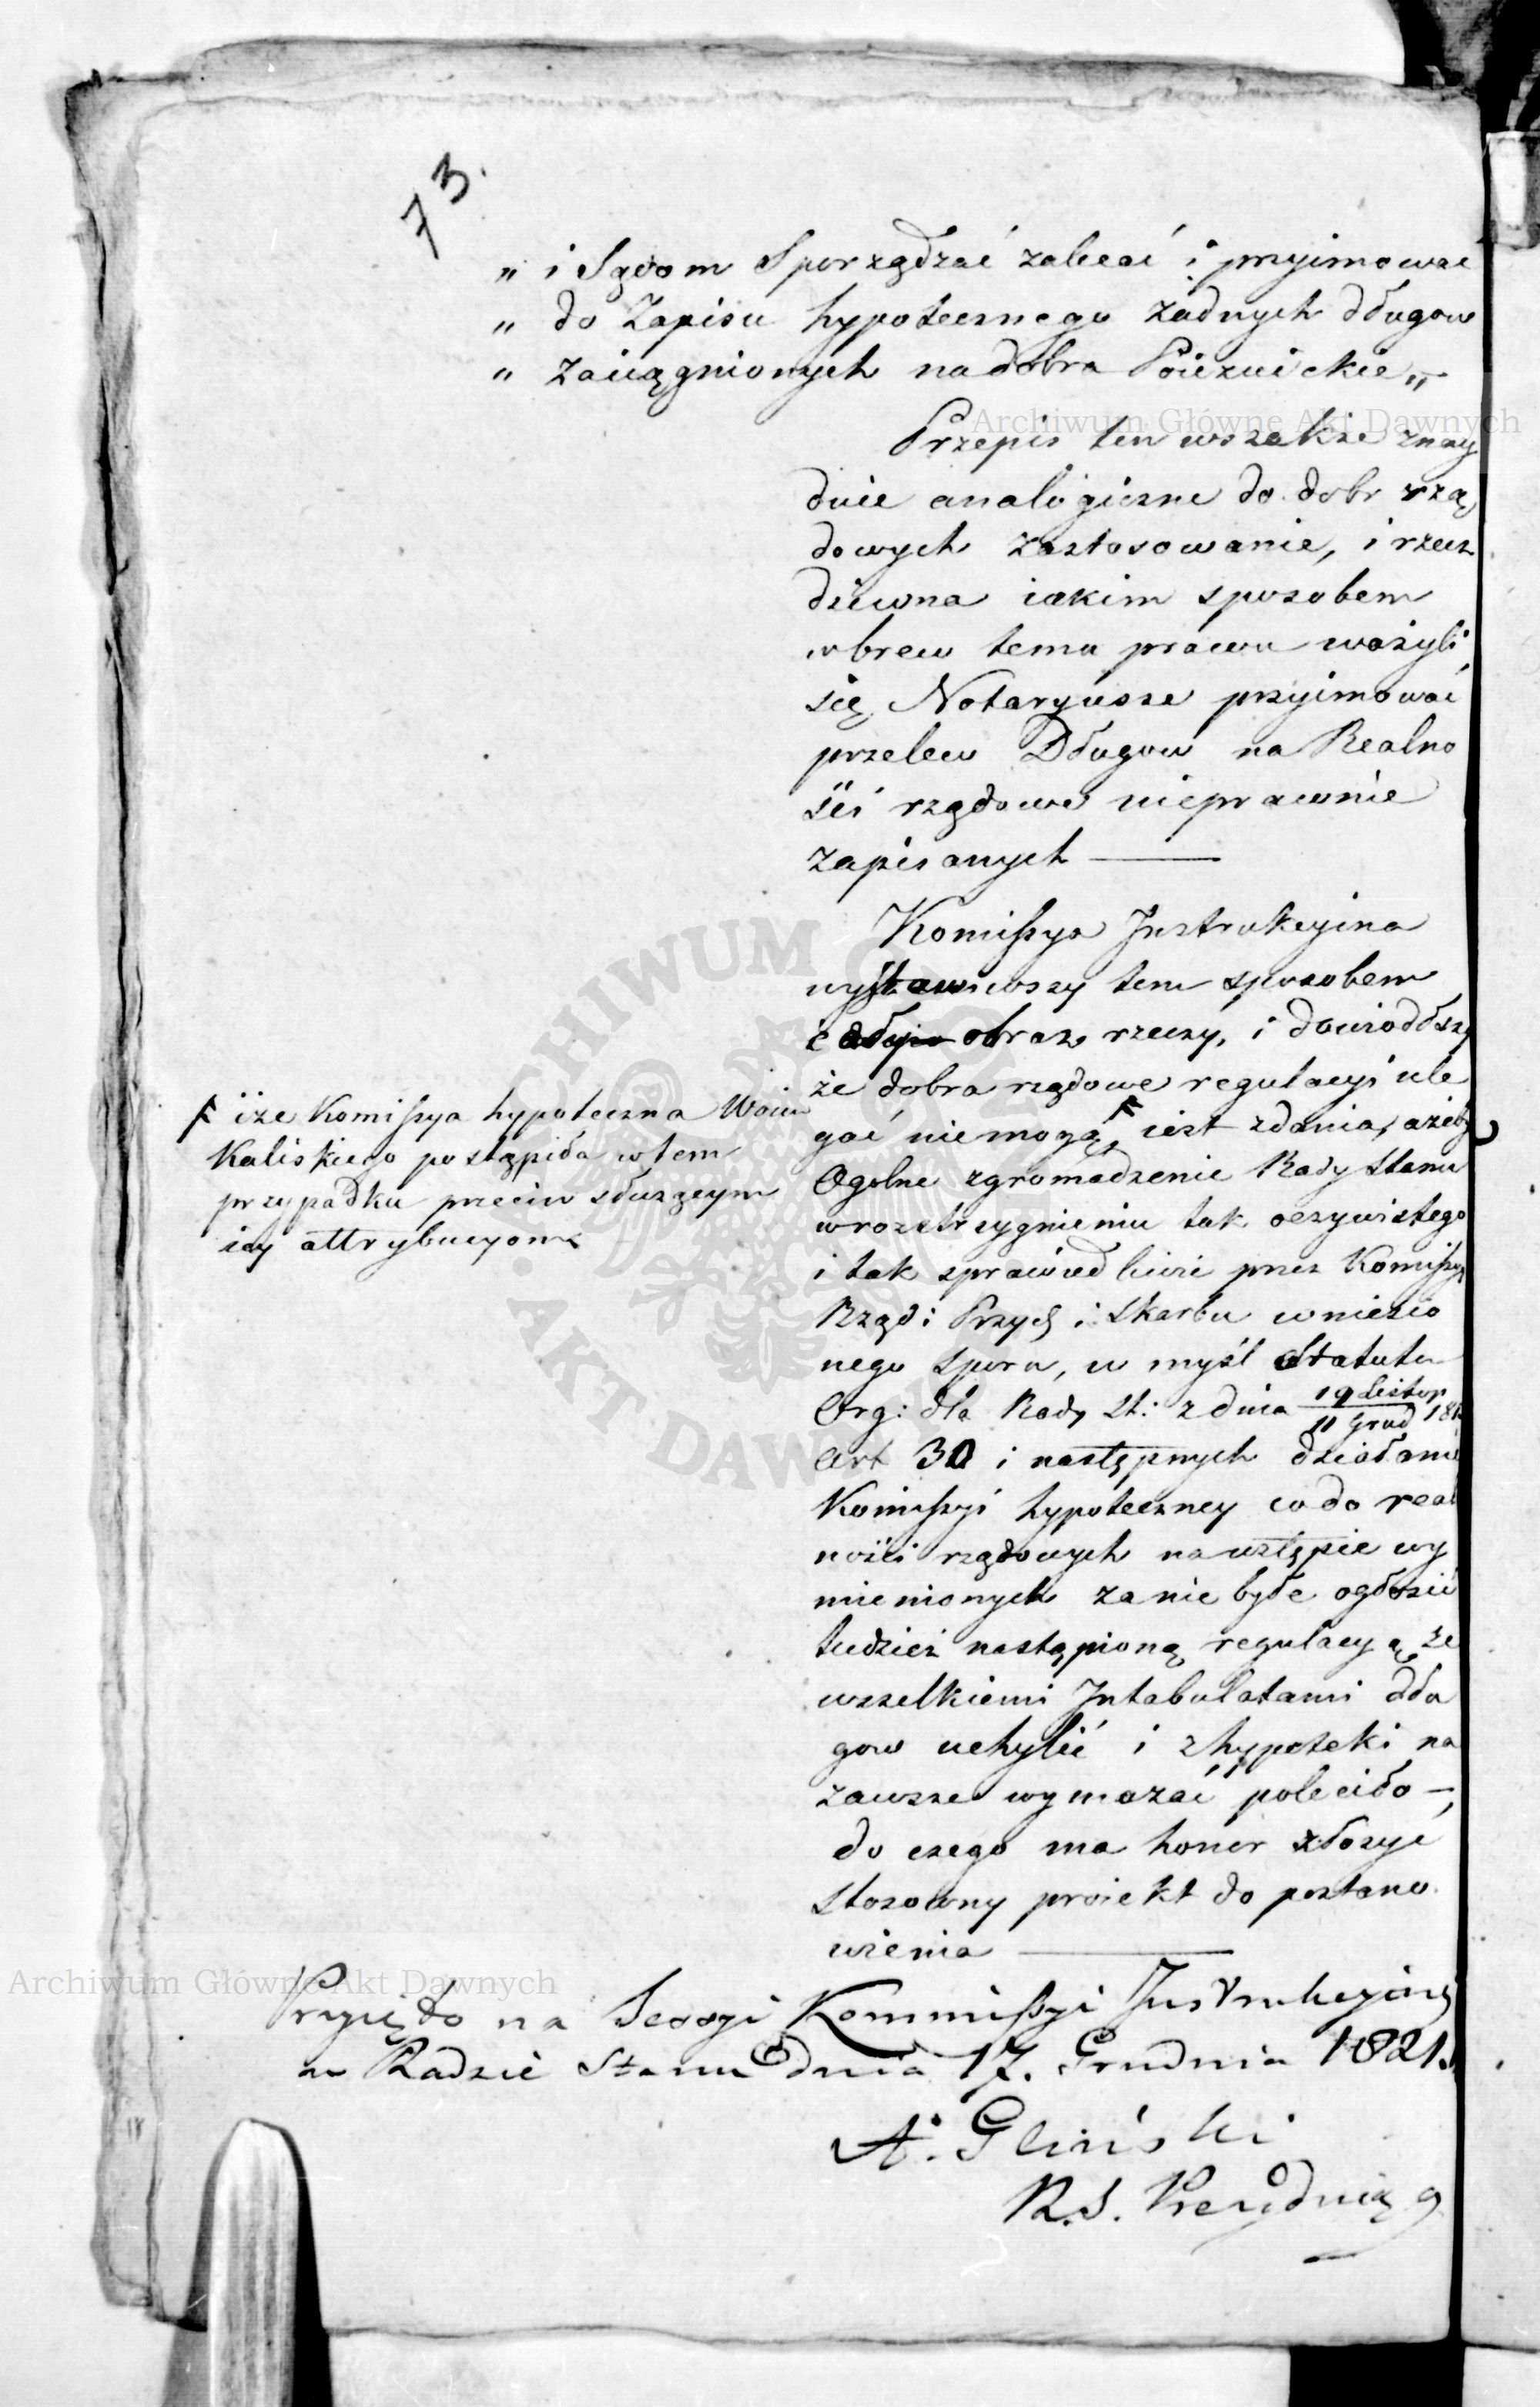 73.
„ i Sądom Sporządzać zalecać i przyimować
„ do Zapisu hypotecznego żadnych długow
„ Zaciągnionych na dobra Poiezuickie„
Przepis ten wszakże znay
duie analogiczne do dobr rzą
dowych zastosowanie, i rzecz
dziwna iakim sposobem
wbrew temu prawu ważyli
się Notaryusze przyimować
przelew Długow na Realno
ści rządowe nieprawnie
zapisanych
Komißya Instrukcyina
wystawiwszy tem sposobem
obraz rzeczy, i dowiodłszy
że dobra rządowe regulacyi ule
gać niemogą, iest zdania, ażeby
Ogolne zgromadzenie Rady Stanu
w rozstrzygnieniu tak oczywistego
i tak sprawiedliwie przez Komißyą
Rząd: Przych i Skarbu wniesio
nego sporu, w myśl Statutu
Org: dla Rady St: z dnia 19 Listop / 11 Grud
Art 30 i następnych działanie
Komißyi hypoteczney co do real
ności rządowych na wstępie wy
mienionych za nie byłe ogłosić
tudzież nastąpioną regulacyą ze
wszelkiemi Intabulatami dłu
gow uchylić i z hypoteki na
zawsze wymazać poleciło —,
do czego ma honor złożyć
Stosowny proiekt do postano
wienia
✝ iże Komißya hypoteczna Woiew
Kaliskiego postąpiła w tem
przypadku przeciw służącym
iey attrybucyom
Przyięto na Sessyi Kommißyi Instrukcyiney
w Radzie Stanu dnia 17. Grudnia 1821.
A. Gliński
R.S. Prezyduiący
Archiwum Główne Akt Dawnych
Archiwum Główne Akt Dawnych
ARCHIWUM GŁÓWNE
AKT DAWNYCH